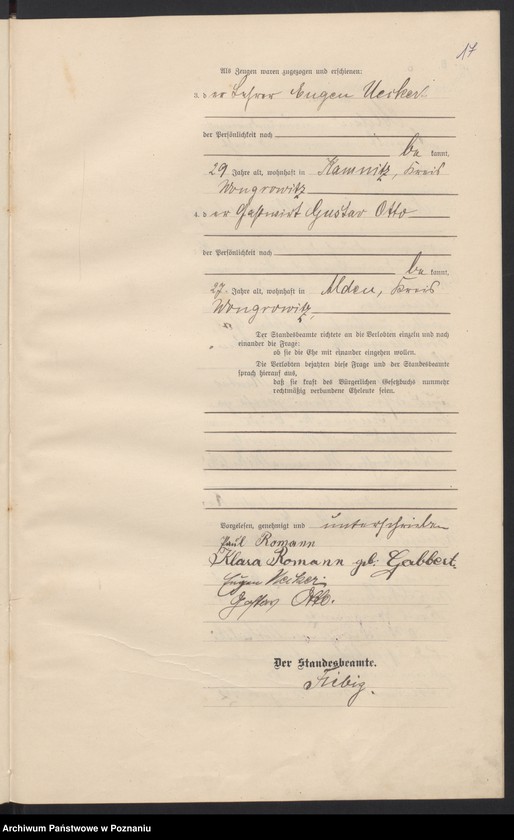 17
Als Zeugen waren zugezogen und erschienen:
3. der Lehrer Eugen Uecker
der Persönlichkeit nach
be kannt,
29 Jahre alt, wohnhaft in Kamnitz, Kreis
Wongrowitz
4. der Gastwirt Gustav Otto
der Persönlichkeit nach
be kannt,
27 Jahre alt, wohnhaft in Alden, Kreis
Wongrowitz.
Der Standesbeamte richtete an die Verlobten einzeln und nach
einander die Frage:
ob sie die Ehe mit einander eingehen wollen.
Die Verlobten bejahten diese Frage und der Standesbeamte
sprach hierauf aus,
daß sie kraft des Bürgerlichen Gesetzbuchs nunmehr
rechtmäßig verbundene Eheleute seien.
Vorgelesen, genehmigt und unterschrieben
Paul Romann
Klara Romann geb. Gabbert.
Eugen Uecker.
Gustav Otto.
Der Standesbeamte.
Fiebig.
Archiwum Państwowe w Poznaniu